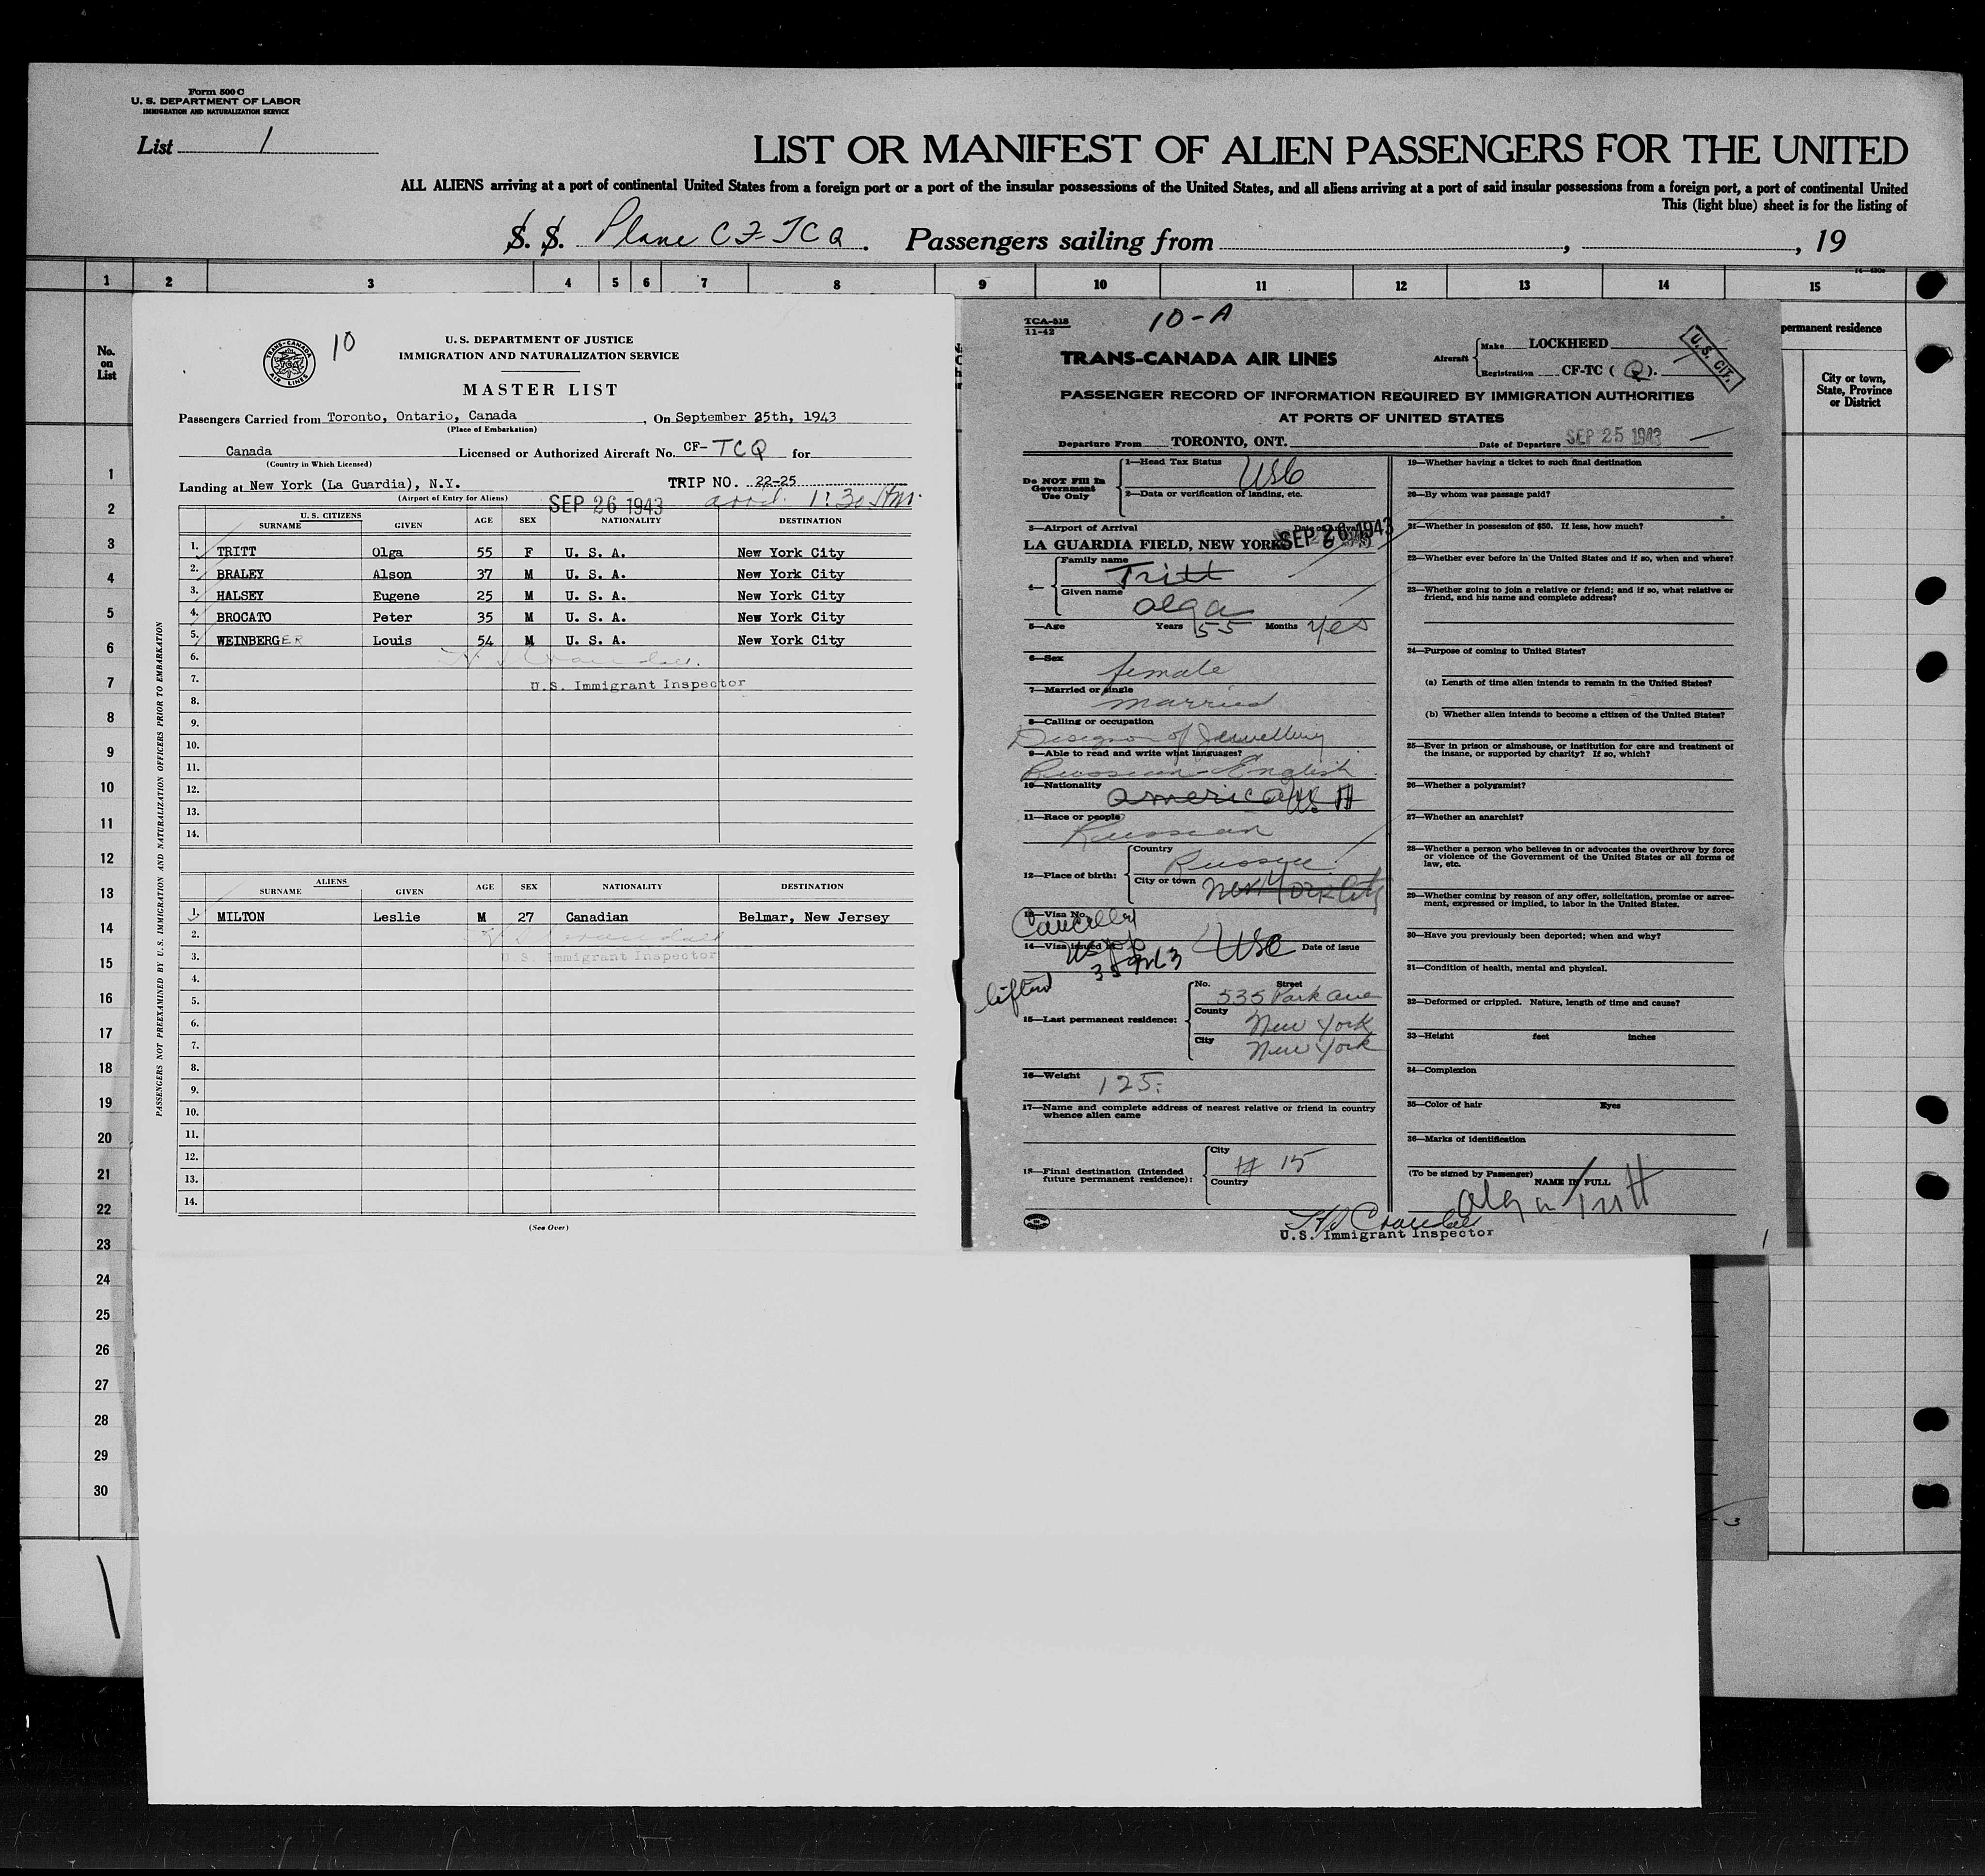 Form 500 C
U. S. DEPARTMENT OF LABOR
IMMIGRATION AND NATURALIZATION SERVICE
List 1
LIST OR MANIFEST OF ALIEN PASSENGERS FOR THE UNITED
ALL ALIENS arriving at a port of continental United States from a foreign port or a port of the insular possessions of the United States, and all aliens arriving at a port of said insular possessions from a foreign port, a port of continental United
This (light blue) sheet is for the listing of
S. S. Plane CF-TCQ. Passengers sailing from , , 19
1 2 3 4 5 6 7 8 9 10 11 12 13 14 15
No. on List
permanent residence
City or town, State, Province or District
1
2
3
4
5
6
7
8
9
10
11
12
13
14
15
16
17
18
19
20
21
22
23
24
25
26
27
28
29
30
TRANS-CANADA AIR LINES
10
U. S. DEPARTMENT OF JUSTICE
IMMIGRATION AND NATURALIZATION SERVICE
MASTER LIST
Passengers Carried from Toronto, Ontario, Canada, On September 25th, 1943
(Place of Embarkation)
Canada Licensed or Authorized Aircraft No. CF-TCQ for
(Country in Which Licensed)
Landing at New York (La Guardia), N.Y. TRIP NO. 22-25
(Airport of Entry for Aliens) SEP 26 1943 arrd. 1:30 AM.
U. S. CITIZENS
SURNAME GIVEN AGE SEX NATIONALITY DESTINATION
1. TRITT Olga 55 F U. S. A. New York City
2. BRALEY Alson 37 M U. S. A. New York City
3. HALSEY Eugene 25 M U. S. A. New York City
4. BROCATO Peter 35 M U. S. A. New York City
5. WEINBERGER Louis 54 M U. S. A. New York City
6.
7. U.S. Immigrant Inspector
8.
9.
10.
11.
12.
13.
14.
ALIENS
SURNAME GIVEN AGE SEX NATIONALITY DESTINATION
1. MILTON Leslie M 27 Canadian Belmar, New Jersey
2.
3. U.S. Immigrant Inspector
4.
5.
6.
7.
8.
9.
10.
11.
12.
13.
14.
(See Over)
PASSENGERS NOT PREEXAMINED BY U.S. IMMIGRATION AND NATURALIZATION OFFICERS PRIOR TO EMBARKATION
TCA-518
11-42
10-A
TRANS-CANADA AIR LINES
Aircraft Make LOCKHEED
Registration CF-TC (Q).
U.S. CIT.
PASSENGER RECORD OF INFORMATION REQUIRED BY IMMIGRATION AUTHORITIES
AT PORTS OF UNITED STATES
Departure From TORONTO, ONT. Date of Departure SEP 25 1943
Do NOT Fill In Government Use Only
1—Head Tax Status USC
2—Data or verification of landing, etc.
3—Airport of Arrival Date of Arrival
LA GUARDIA FIELD, NEW YORK SEP 26 1943
4— Family name Tritt
Given name Olga
5—Age Years 55 Months yes
6—Sex female
7—Married or single married
8—Calling or occupation
Designor of Jewellery
9—Able to read and write what languages?
Russian-English
10—Nationality American
11—Race or people
Russian
12—Place of birth: Country Russia
City or town New York City
13—Visa No. Cancelled
14—Visa issued at USC Date of issue
lifted
15—Last permanent residence: No. Street 535 Park Ave
County New York
City New York
16—Weight 125.
17—Name and complete address of nearest relative or friend in country whence alien came
18—Final destination (Intended future permanent residence): City # 15
Country
19—Whether having a ticket to such final destination
20—By whom was passage paid?
21—Whether in possession of $50. If less, how much?
22—Whether ever before in the United States and if so, when and where?
23—Whether going to join a relative or friend; and if so, what relative or friend, and his name and complete address?
24—Purpose of coming to United States?
(a) Length of time alien intends to remain in the United States?
(b) Whether alien intends to become a citizen of the United States?
25—Ever in prison or almshouse, or institution for care and treatment of the insane, or supported by charity? If so, which?
26—Whether a polygamist?
27—Whether an anarchist?
28—Whether a person who believes in or advocates the overthrow by force or violence of the Government of the United States or all forms of law, etc.
29—Whether coming by reason of any offer, solicitation, promise or agreement, expressed or implied, to labor in the United States.
30—Have you previously been deported; when and why?
31—Condition of health, mental and physical.
32—Deformed or crippled. Nature, length of time and cause?
33—Height feet inches
34—Complexion
35—Color of hair Eyes
36—Marks of identification
(To be signed by Passenger) NAME IN FULL
Olga Tritt
U.S. Immigrant Inspector
1